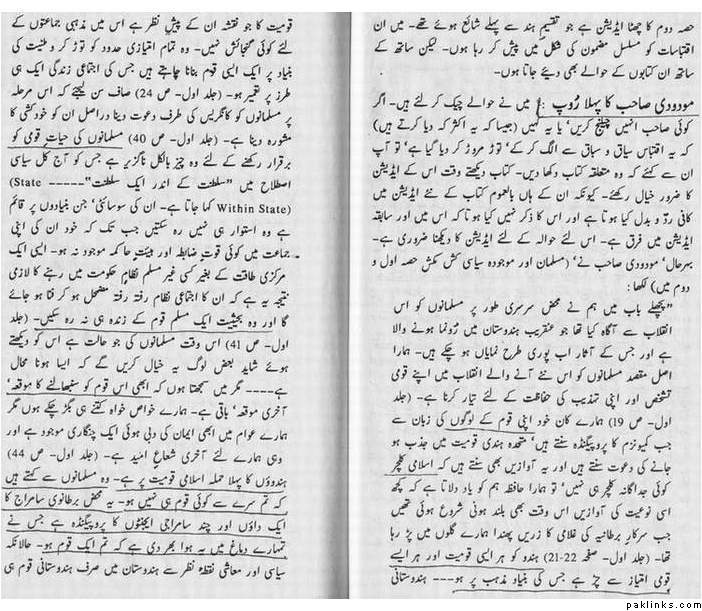 حصہ دوم کا چھٹا ایڈیشن ہے جو تقسیم ہند سے پہلے شائع ہوئے تھے۔ میں ان
اقتباسات کو مسلسل مضمون کی شکل میں پیش کر رہا ہوں۔ لیکن ساتھ کے
ساتھ ان کتابوں کے حوالے بھی دیئے جاتا ہوں۔
مودودی صاحب کا پہلا رُوپ : میں نے حوالے چیک کر لئے ہیں۔ اگر
کوئی صاحب انہیں چیلنج کریں‘ یا یہ کہیں (جیسا کہ یہ اکثر کہہ دیا کرتے ہیں)
کہ یہ اقتباس سیاق و سباق سے الگ کر کے‘ توڑ مروڑ کر دیا گیا ہے‘ تو آپ
ان سے کہئے کہ وہ متعلقہ کتاب دکھا دیں۔ کتاب دیکھتے وقت اس کے ایڈیشن
کا ضرور خیال رکھئے۔ کیونکہ ان کے ہاں بالعموم کتاب کے نئے ایڈیشن میں
کافی ردّ و بدل کیا ہوتا ہے اور اس کا ذکر نہیں کیا ہوتا کہ اس میں اور سابقہ
ایڈیشن میں فرق ہے۔ اس لئے حوالہ کے لئے ایڈیشن کا دیکھنا ضروری ہے۔
بہرحال‘ مودودی صاحب نے‘ (مسلمان اور موجودہ سیاسی کش مکش حصہ اول و
دوم میں) لکھا:
”پچھلے باب میں ہم نے محض سرسری طور پر مسلمانوں کو اس
انقلاب سے آگاہ کیا تھا جو عنقریب ہندوستان میں رُونما ہونے والا
ہے اور جس کے آثار اب پوری طرح نمایاں ہو چکے ہیں۔ ہمارا
اصل مقصد مسلمانوں کو اس نئے آنے والے انقلاب میں اپنے قومی
تشخص اور اپنی تہذیب کی حفاظت کے لئے تیار کرنا ہے۔ (جلد
اول۔ ص 19) ہمارے کان خود اپنی قوم کے لوگوں کی زبان سے
جب کمیونزم کا پروپیگنڈہ سنتے ہیں‘ متحدہ ہندی قومیت میں جذب ہو
جانے کی دعوت سنتے ہیں اور یہ آوازیں بھی سنتے ہیں کہ اسلامی کلچر
کوئی جداگانہ کلچر ہی نہیں‘ تو ہمارا حافظہ ہم کو یاد دلاتا ہے کہ کچھ
اسی نوعیت کی آوازیں اس وقت بھی بلند ہونی شروع ہوئی تھیں
جب سرکارِ برطانیہ کی غلامی کا زریں پھندا ہمارے گلوں میں پڑ رہا
تھا۔ (جلد اول۔ صفحہ 22-21) ہندو کو ہر ایسی قومیت اور ہر ایسے
قومی امتیاز سے چڑ ہے جس کی بنیاد مذہب پر ہو ---- ہندوستانی
قومیت کا جو نقشہ ان کے پیشِ نظر ہے اس میں مذہبی جماعتوں کے
لئے کوئی گنجائش نہیں۔ وہ تمام امتیازی حدود کو توڑ کر وطنیت کی
بنیاد پر ایک ایسی قوم بنانا چاہتے ہیں جس کی اجتماعی زندگی ایک ہی
طرز پر تعمیر ہو۔ (جلد اول۔ ص 24) صاف سن لیجئے کہ اس مرحلہ
پر مسلمانوں کو کانگریس کی طرف دعوت دینا دراصل ان کو خودکشی کا
مشورہ دینا ہے۔ (جلد اول۔ ص 40) مسلمانوں کی حیاتِ قومی کو
برقرار رکھنے کے لئے وہ چیز بالکل ناگزیر ہے جس کو آج کل سیاسی
اصطلاح میں ”سلطنت کے اندر ایک سلطنت“ ----- (State
Within State) کہا جاتا ہے۔ ان کی سوسائٹی‘ جن بنیادوں پر قائم
ہے وہ استوار ہی نہیں رہ سکتیں جب تک کہ خود ان کی اپنی
جماعت میں کوئی قوتِ ضابطہ اور ہیئتِ حاکمہ موجود نہ ہو۔ ایسی ایک
مرکزی طاقت کے بغیر کسی غیر مسلم نظامِ حکومت میں رہنے کا لازمی
نتیجہ یہ ہے کہ ان کا اجتماعی نظام رفتہ رفتہ مضمحل ہو کر فنا ہو جائے
گا اور وہ بحیثیت ایک مسلم قوم کے زندہ ہی نہ رہ سکیں۔ (جلد
اول۔ ص 41) اس وقت مسلمانوں کی جو حالت ہے اس کو دیکھتے
ہوئے شاید بعض لوگ یہ خیال کریں گے کہ ایسا ہونا محال
ہے ---- مگر میں سمجھتا ہوں کہ ابھی اس قوم کو سنبھالنے کا موقعہ‘
آخری موقعہ‘ باقی ہے۔ ہمارے خواص خواہ کتنے ہی بگڑ چکے ہوں مگر
ہمارے عوام میں ابھی ایمان کی دبی ہوئی ایک چنگاری موجود ہے اور
وہی ہمارے لئے آخری شعاعِ امید ہے۔ (جلد اول۔ ص 44)
ہندوؤں کا پہلا حملہ اسلامی قومیت پر ہے۔ وہ مسلمانوں سے کہتے ہیں
کہ تم سرے سے کوئی قوم ہی نہیں ہو۔ یہ محض برطانوی سامراج کا
ایک داؤں اور چند سامراجی ایجنٹوں کا پروپیگنڈہ ہے جس نے
تمہارے دماغ میں یہ ہوا بھر دی ہے کہ تم ایک قوم ہو۔ حالانکہ
سیاسی اور معاشی نقطۂ نظر سے ہندوستان میں صرف ہندوستانی قوم ہی
paklinks.com